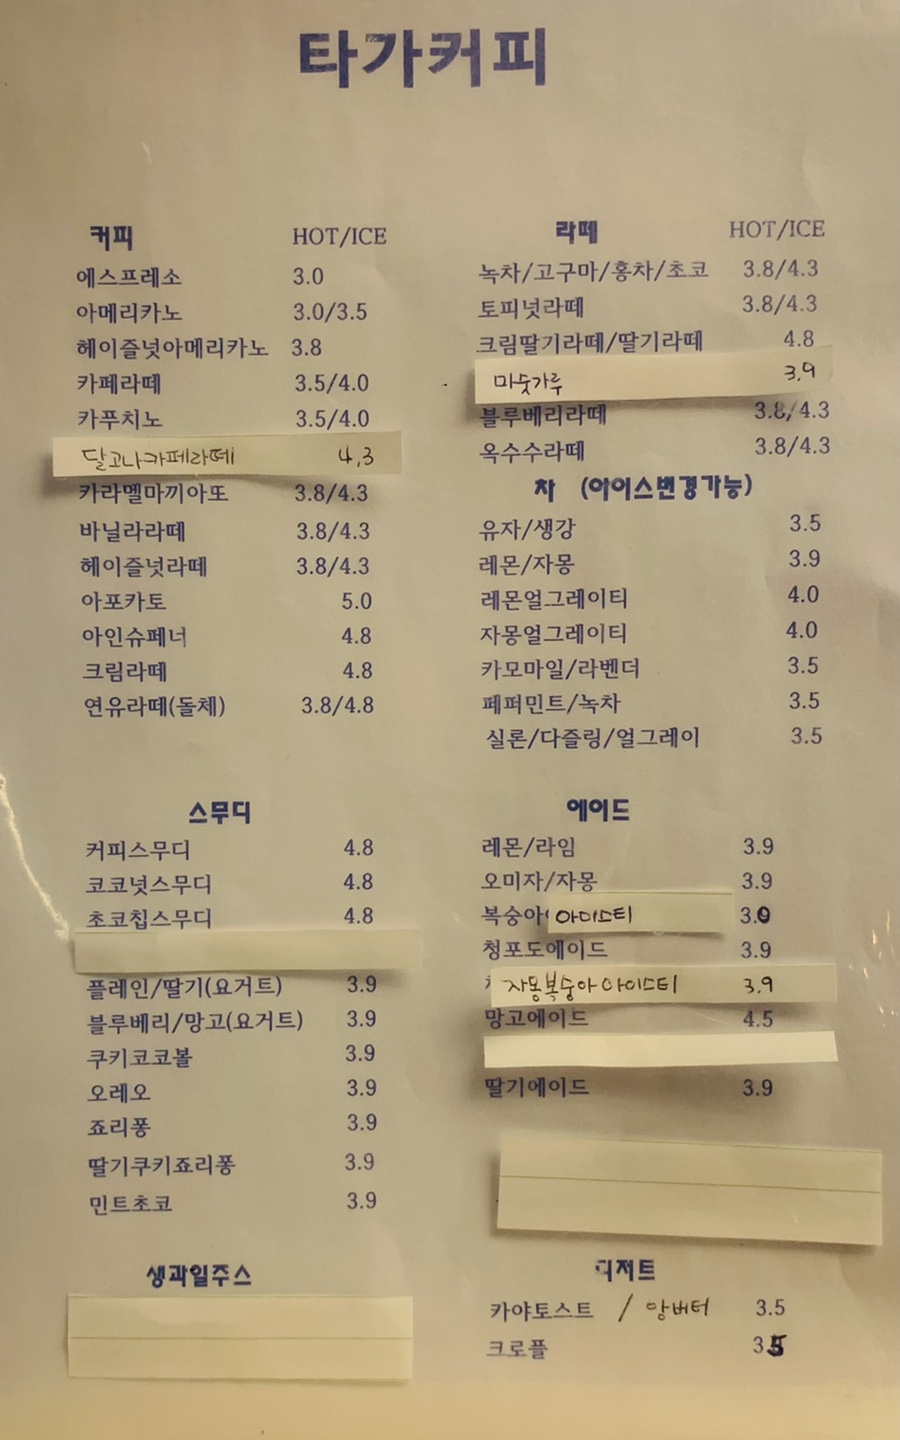 타가커피
커피 HOT/ICE
에스프레소 3.0
아메리카노 3.0/3.5
헤이즐넛아메리카노 3.8
카페라떼 3.5/4.0
카푸치노 3.5/4.0
달고나카페라떼 4,3
카라멜마끼아또 3.8/4.3
바닐라라떼 3.8/4.3
헤이즐넛라떼 3.8/4.3
아포카토 5.0
아인슈페너 4.8
크림라떼 4.8
연유라떼(돌체) 3.8/4.8
스무디
커피스무디 4.8
코코넛스무디 4.8
초코칩스무디 4.8
플레인/딸기(요거트) 3.9
블루베리/망고(요거트) 3.9
쿠키코코볼 3.9
오레오 3.9
죠리퐁 3.9
딸기쿠키죠리퐁 3.9
민트초코 3.9
생과일주스
라떼 HOT/ICE
녹차/고구마/홍차/초코 3.8/4.3
토피넛라떼 3.8/4.3
크림딸기라떼/딸기라떼 4.8
미숫가루 3.9
블루베리라떼 3.8/4.3
옥수수라떼 3.8/4.3
차 (아이스변경가능)
유자/생강 3.5
레몬/자몽 3.9
레몬얼그레이티 4.0
자몽얼그레이티 4.0
카모마일/라벤더 3.5
페퍼민트/녹차 3.5
실론/다즐링/얼그레이 3.5
에이드
레몬/라임 3.9
오미자/자몽 3.9
복숭아 아이스티 3.0
청포도에이드 3.9
자몽복숭아아이스티 3.9
망고에이드 4.5
딸기에이드 3.9
디저트
카야토스트 / 앙버터 3.5
크로플 3.5